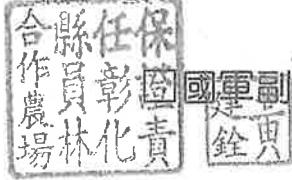 保證責
任彰化
縣員林
合作農場
國
副
銓